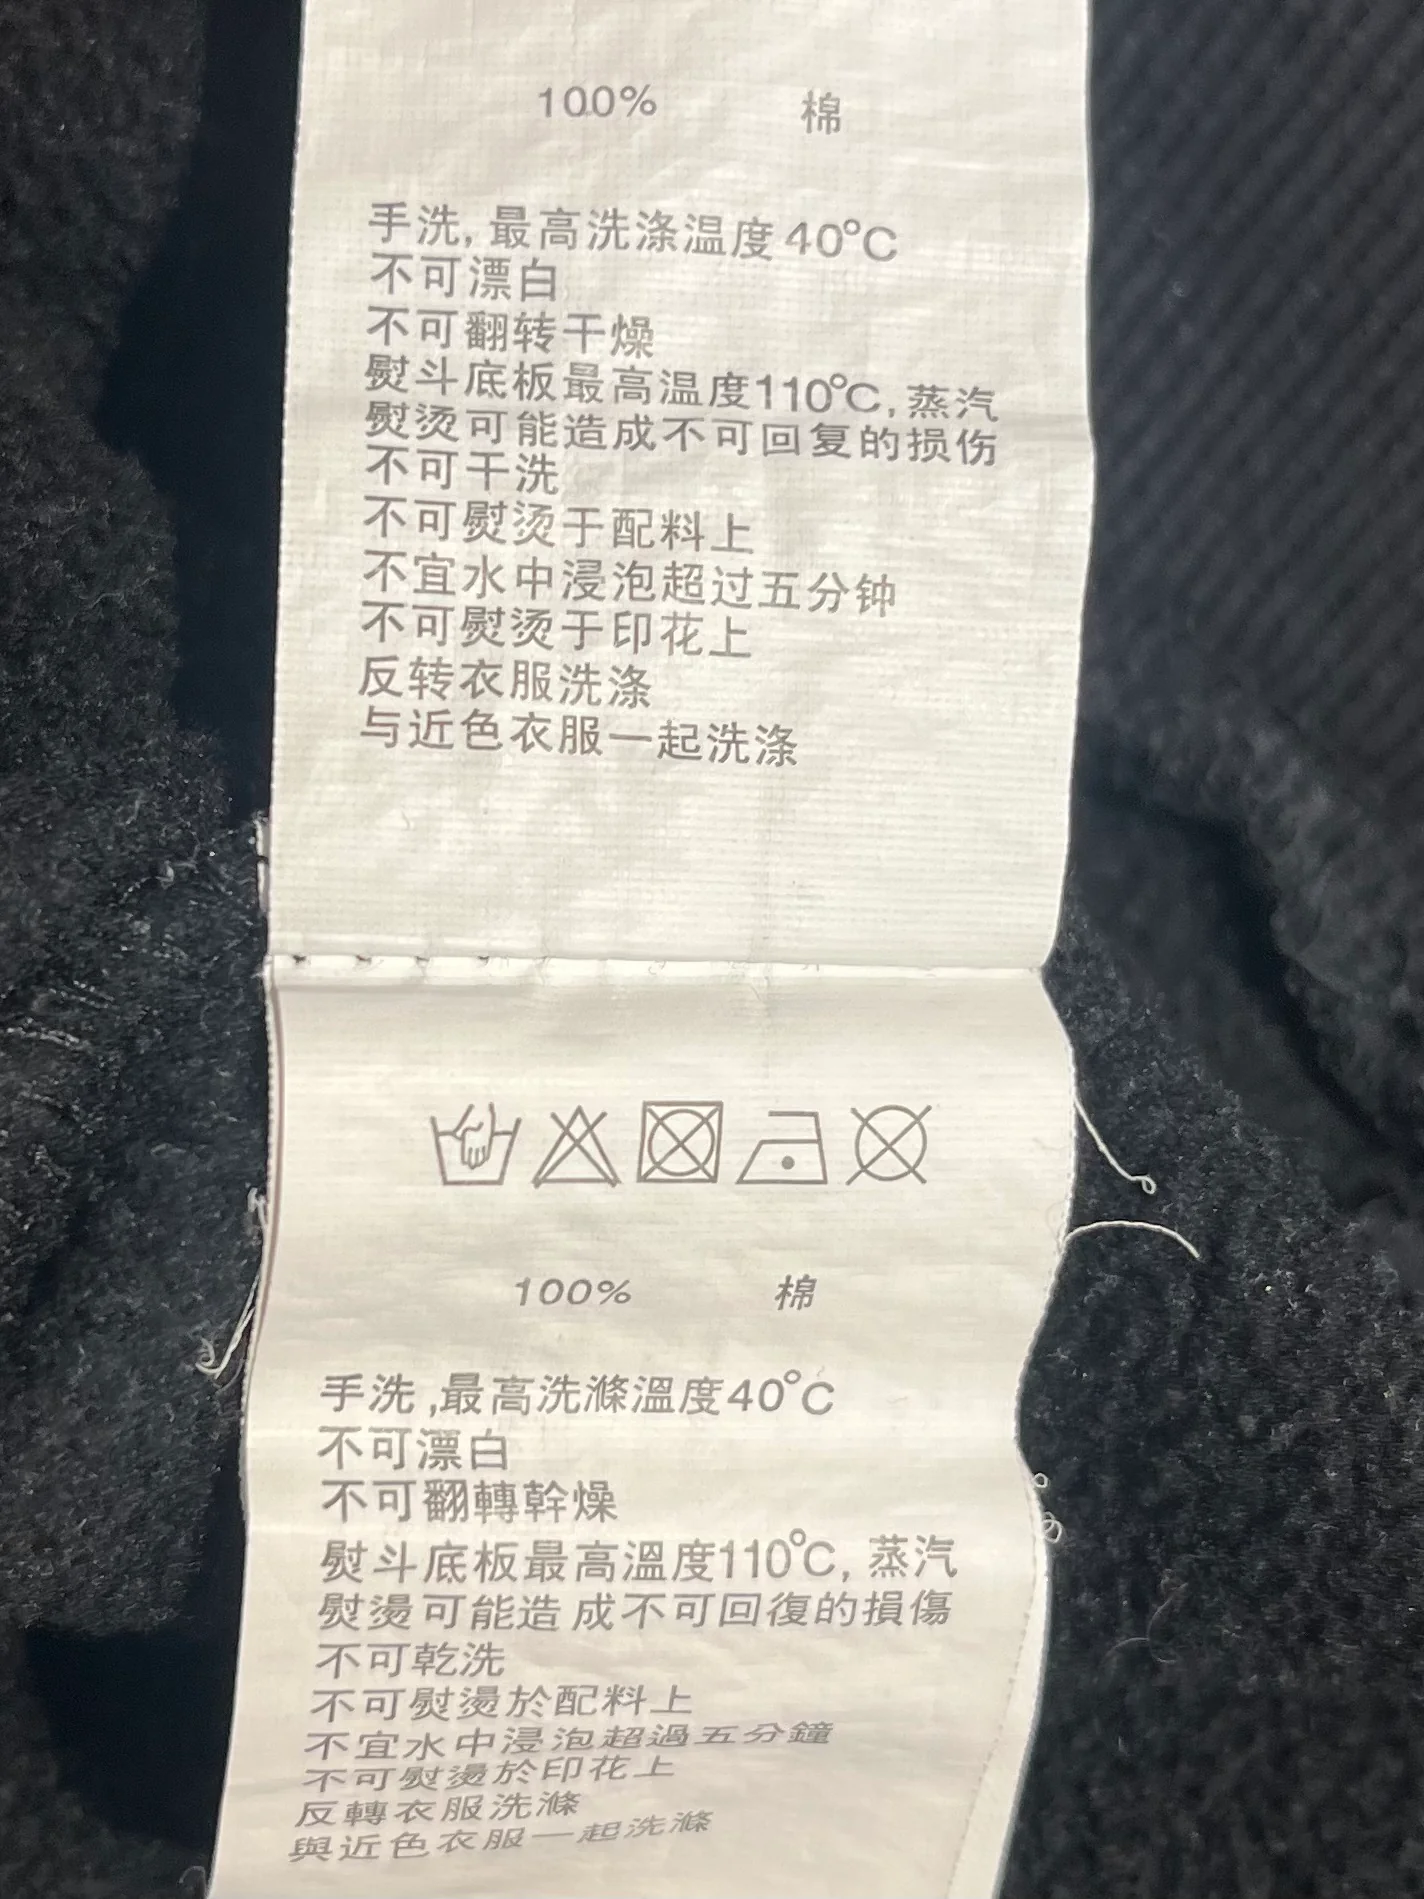 100% 棉
手洗, 最高洗涤温度40°C
不可漂白
不可翻转干燥
熨斗底板最高温度110°C, 蒸汽
熨烫可能造成不可回复的损伤
不可干洗
不可熨烫于配料上
不宜水中浸泡超过五分钟
不可熨烫于印花上
反转衣服洗涤
与近色衣服一起洗涤
100% 棉
手洗,最高洗滌溫度40°C
不可漂白
不可翻轉幹燥
熨斗底板最高溫度110°C, 蒸汽
熨燙可能造成不可回復的損傷
不可乾洗
不可熨燙於配料上
不宜水中浸泡超過五分鐘
不可熨燙於印花上
反轉衣服洗滌
與近色衣服一起洗滌